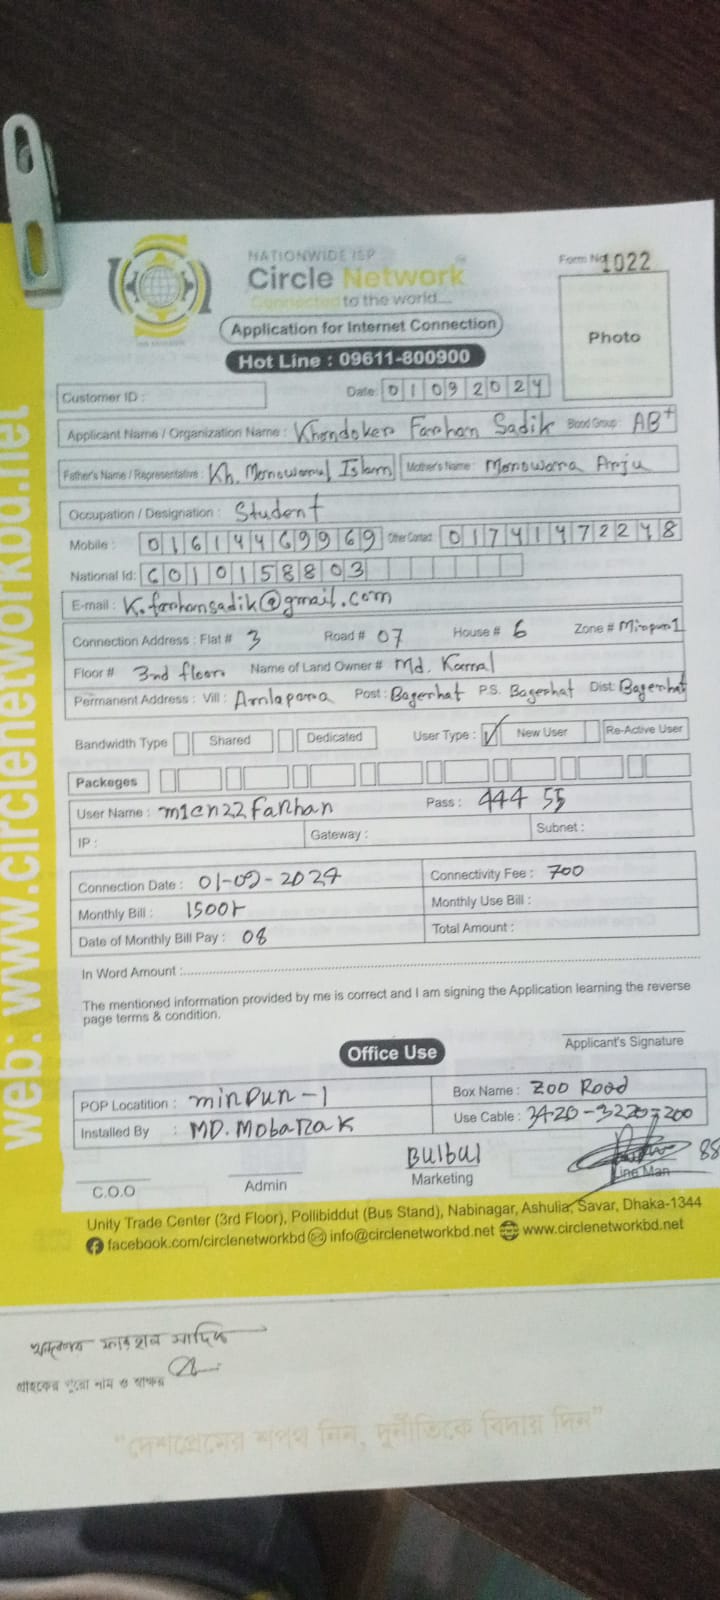 NATIONWIDE ISP
Circle Network
Connected to the world....
Form No 1022
Application for Internet Connection
Hot Line : 09611-800900
Photo
Customer ID :
Date: 01092024
Applicant Name / Organization Name : Khondoker Farhan Sadik Blood Group : AB+
Father's Name / Representative : Kh. Monowarul Islam Mother's Name : Monowara Anju
Occupation / Designation : Student
Mobile : 01614469969 Other Contact : 01741472278
National Id: 6010158803
E-mail : K.farhansadik@gmail.com
Connection Address : Flat # 3 Road # 07 House # 6 Zone # Mirpur1
Floor # 3rd floor Name of Land Owner # Md. Kamal
Permanent Address : Vill : Amlapara Post : Bagerhat P.S. Bagerhat Dist: Bagerhat
Bandwidth Type Shared Dedicated User Type : ✓ New User Re-Active User
Packeges
User Name : m1cn22farhan Pass : 444 55
IP : Gateway : Subnet :
Connection Date : 01-09-2024 Connectivity Fee : 700
Monthly Bill : 1500৳ Monthly Use Bill :
Date of Monthly Bill Pay : 08 Total Amount :
In Word Amount :
The mentioned information provided by me is correct and I am signing the Application learning the reverse
page terms & condition.
Applicant's Signature
Office Use
POP Locatition : mirpur-1 Box Name : Zoo Road
Installed By : MD. Mobarak Use Cable : 3420-3220=200
Bulbul 88
C.O.O Admin Marketing Line Man
Unity Trade Center (3rd Floor), Pollibiddut (Bus Stand), Nabinagar, Ashulia, Savar, Dhaka-1344
facebook.com/circlenetworkbd info@circlenetworkbd.net www.circlenetworkbd.net
web: www.circlenetworkbd.net
খন্দোকার ফারহান সাদিক
গ্রাহকের পুরো নাম ও স্বাক্ষর
“দেশপ্রেমের শপথ নিন, দুর্নীতিকে বিদায় দিন”